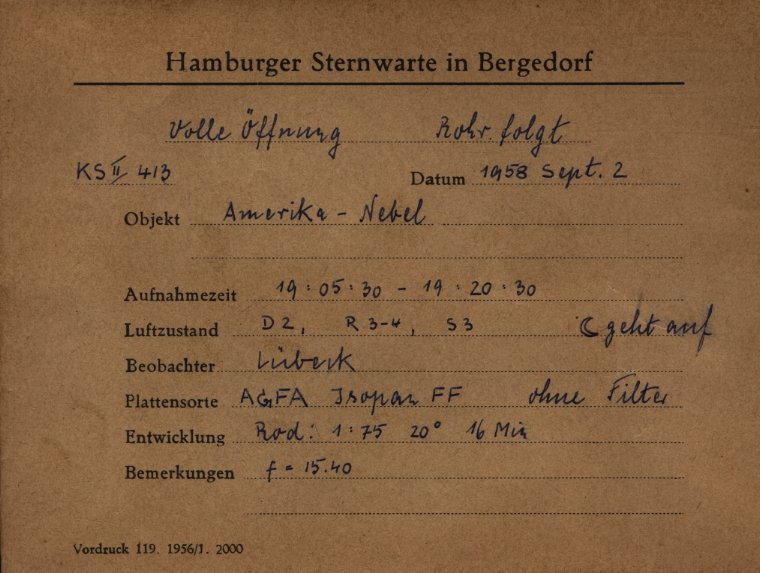 Hamburger Sternwarte in Bergedorf
Volle Öffnung Rohr folgt
KS II 413 Datum 1958 Sept. 2
Objekt Amerika - Nebel
Aufnahmezeit 19:05:30 - 19:20:30
Luftzustand D2, R 3-4, S3 ☾ geht auf
Beobachter Lübeck
Plattensorte AGFA Isopan FF ohne Filter
Entwicklung Rod: 1:75 20° 16 Min
Bemerkungen f = 15.40
Vordruck 119. 1956/1. 2000